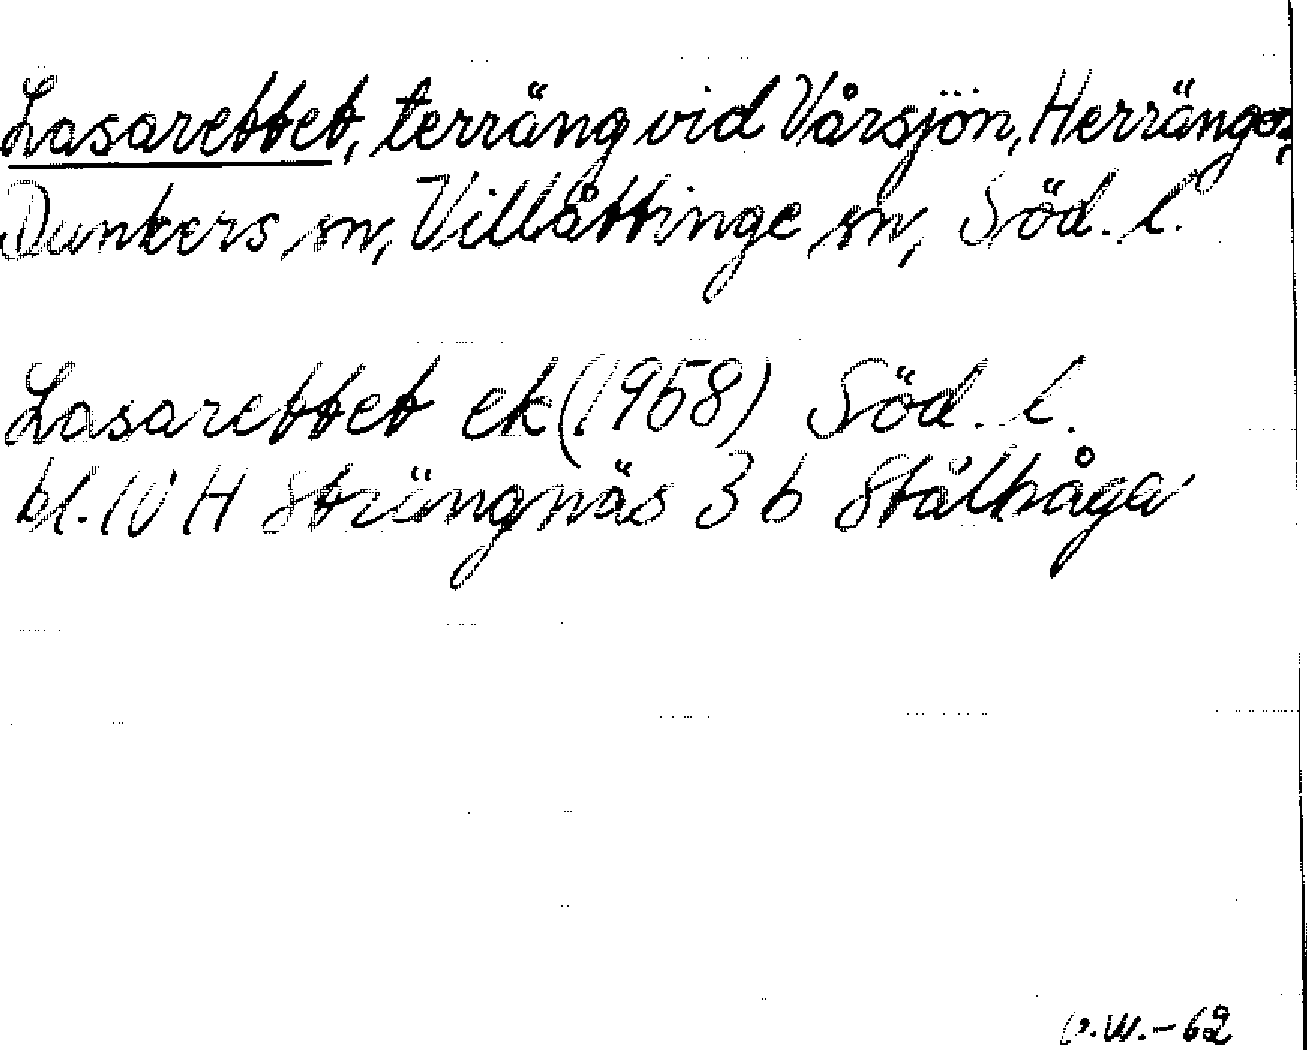 Lasarettet, terräng vid Vårsjön, Herrängen,
Dunkers sn, Villåttinge sn, Söd. l.
Lasarettet ek (1958) Söd. l.
bl. IV H Strängnäs 3 b Stålhåga
-62